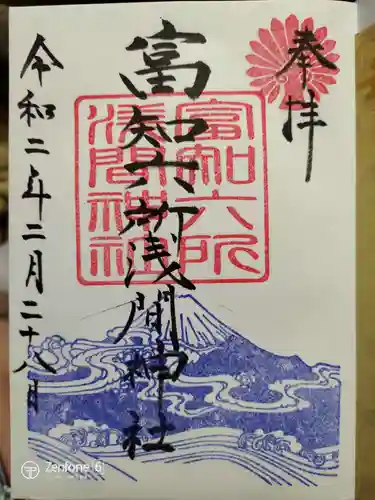 奉拝
富知六所浅間神社
富知六所
浅間神社
令和二年二月二十八日
Zenfone 6